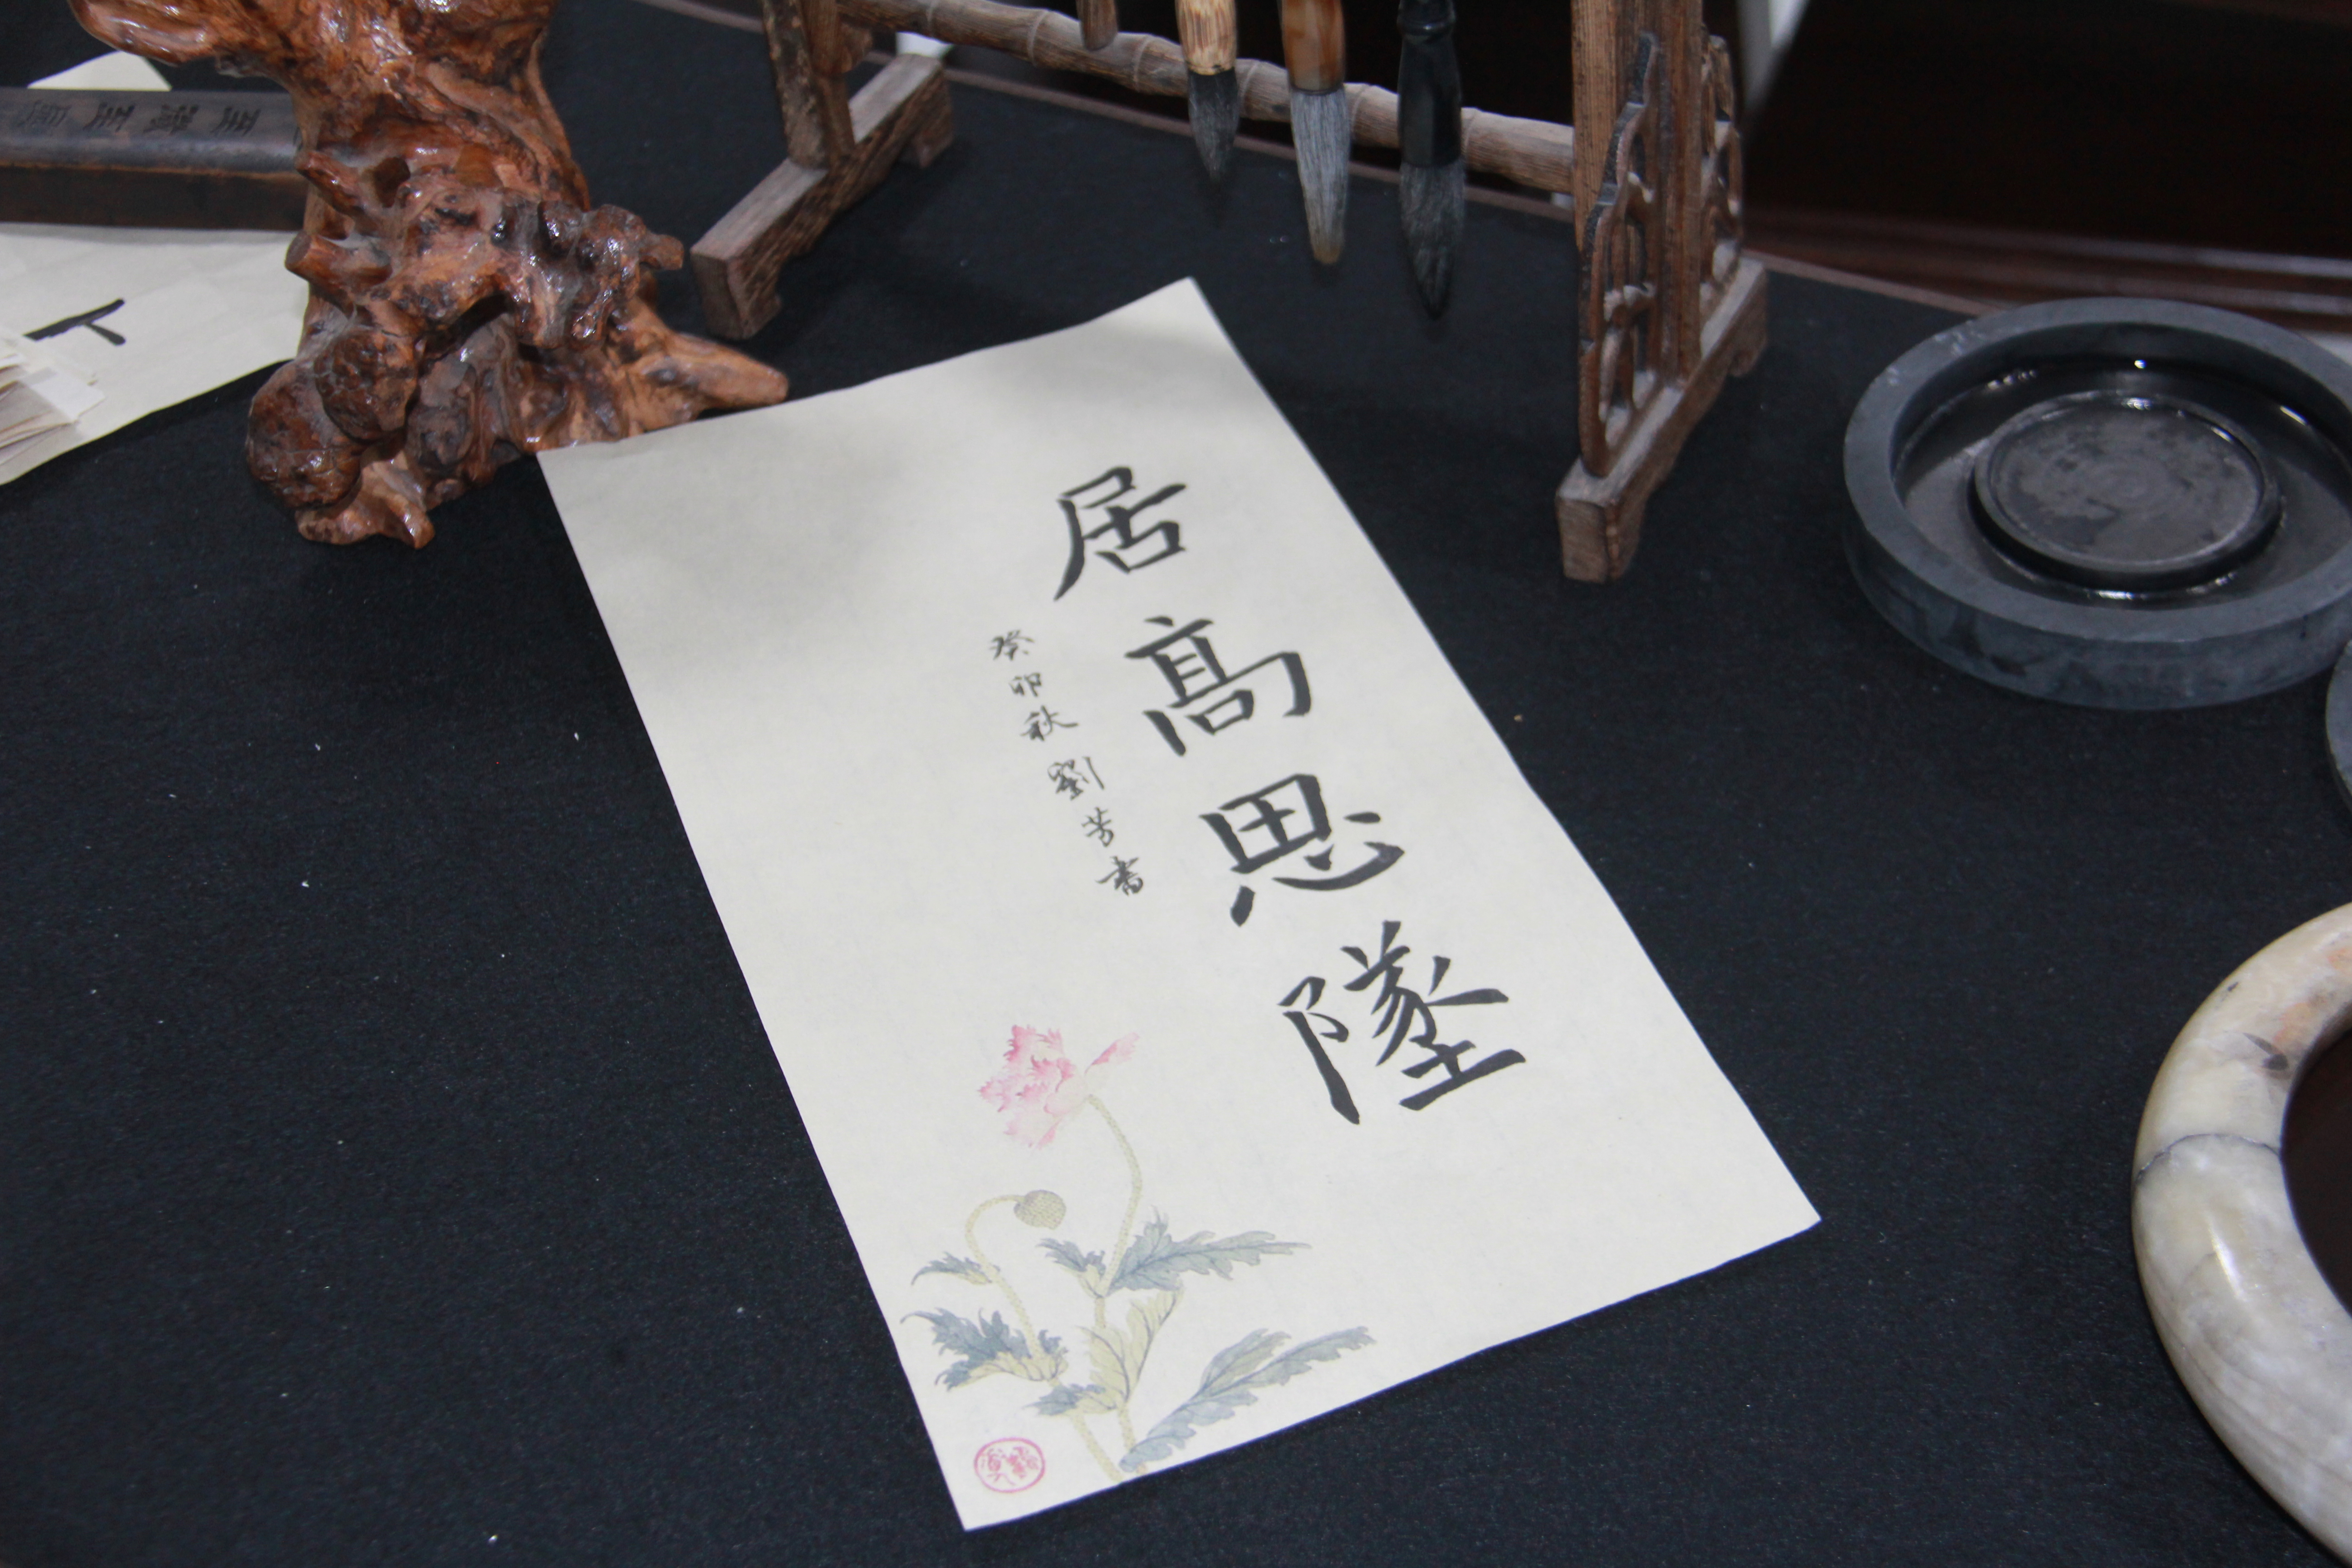 居高思墜
癸卯秋劉芳書